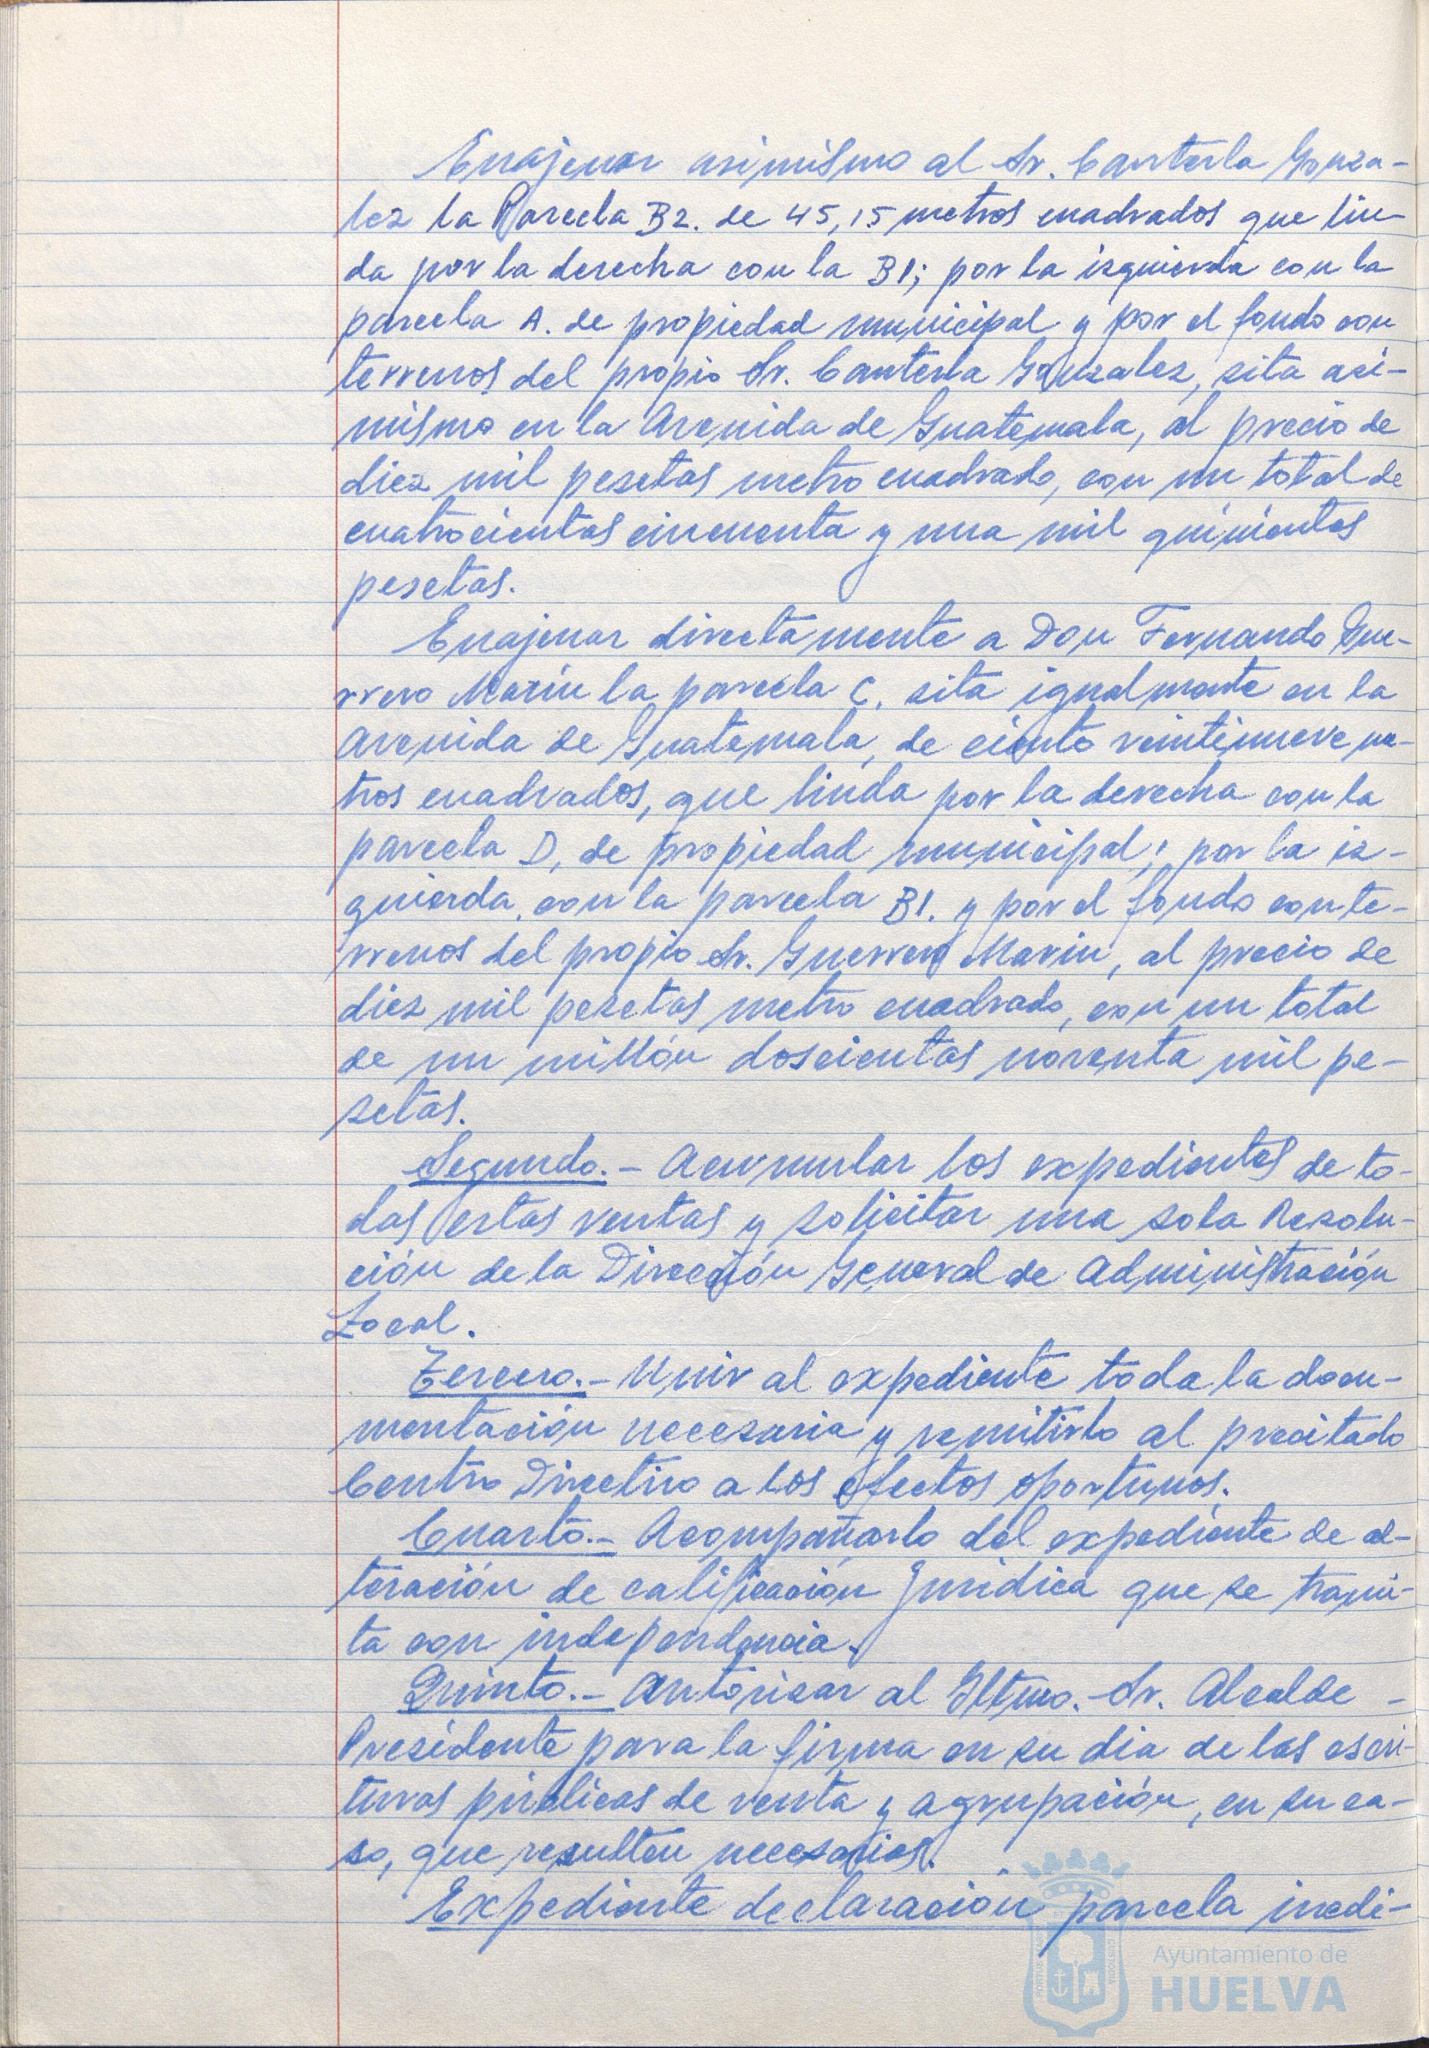 Enajenar asimismo al Sr. Canterla Gonza-
lez la Parcela B2. de 45,15 metros cuadrados que lin-
da por la derecha con la B1; por la izquierda con la
parcela A. de propiedad municipal y por el fondo con
terrenos del propio Sr. Canterla Gonzalez, sita asi-
mismo en la Avenida de Guatemala, al precio de
diez mil pesetas metro cuadrado, con un total de
cuatrocientas cincuenta y una mil quinientas
pesetas.
Enajenar directamente a Don Fernando Gue-
rrero Marin la parcela C. sita igualmente en la
Avenida de Guatemala, de ciento veintinueve me-
tros cuadrados, que linda por la derecha con la
parcela D, de propiedad municipal; por la iz-
quierda, con la parcela B1. y por el fondo con te-
rrenos del propio Sr. Guerrero Marin, al precio de
diez mil pesetas metro cuadrado, con un total
de un millón doscientas noventa mil pe-
setas.
Segundo.- Acumular los expedientes de to-
das estas ventas y solicitar una sola Resolu-
ción de la Dirección General de Administración
Local.
Tercero.- Unir al expediente toda la docu-
mentación necesaria y remitirlo al precitado
Centro Directivo a los efectos oportunos.
Cuarto.- Acompañarlo del expediente de al-
teración de calificación Juridica que se trami-
ta con independencia.
Quinto.- Autorizar al Iltmo. Sr. Alcalde -
Presidente para la firma en su dia de las escri-
turas públicas de venta y agrupación, en su ca-
so, que resulten necesarias.
Expediente declaración parcela inedi-
Ayuntamiento de
HUELVA